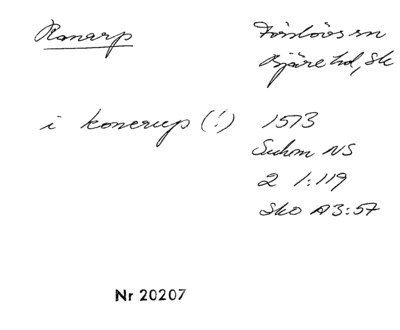 Ranarp
Förslövs sn
Bjäre hd, Sk
i konerup (!) 1573
Suhm NS
2 1:119
Sko A3:57
Nr 20207